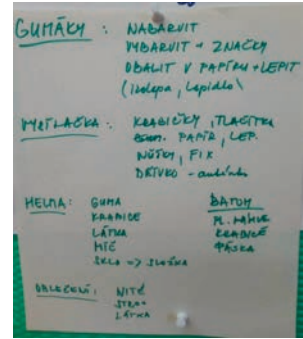 GUMÁKY : NABARVIT
VYBARVIT + ZNAČKY
OBALIT V PAPÍRU + LEPIT
(izolepa, lepidlo)
KRABIČKY, TLAČÍTKA
PAPÍR, LEP.
NŮŽKY, FIX
DŘÍVKO -
HELMA: GUMA
KRABICE
LÁTKA
MÍČ
SKLO =>
BATOH
PL. LÁHVE
KRABICE
PÁSKA
OBLEČENÍ: NITĚ
STROJ
LÁTKA